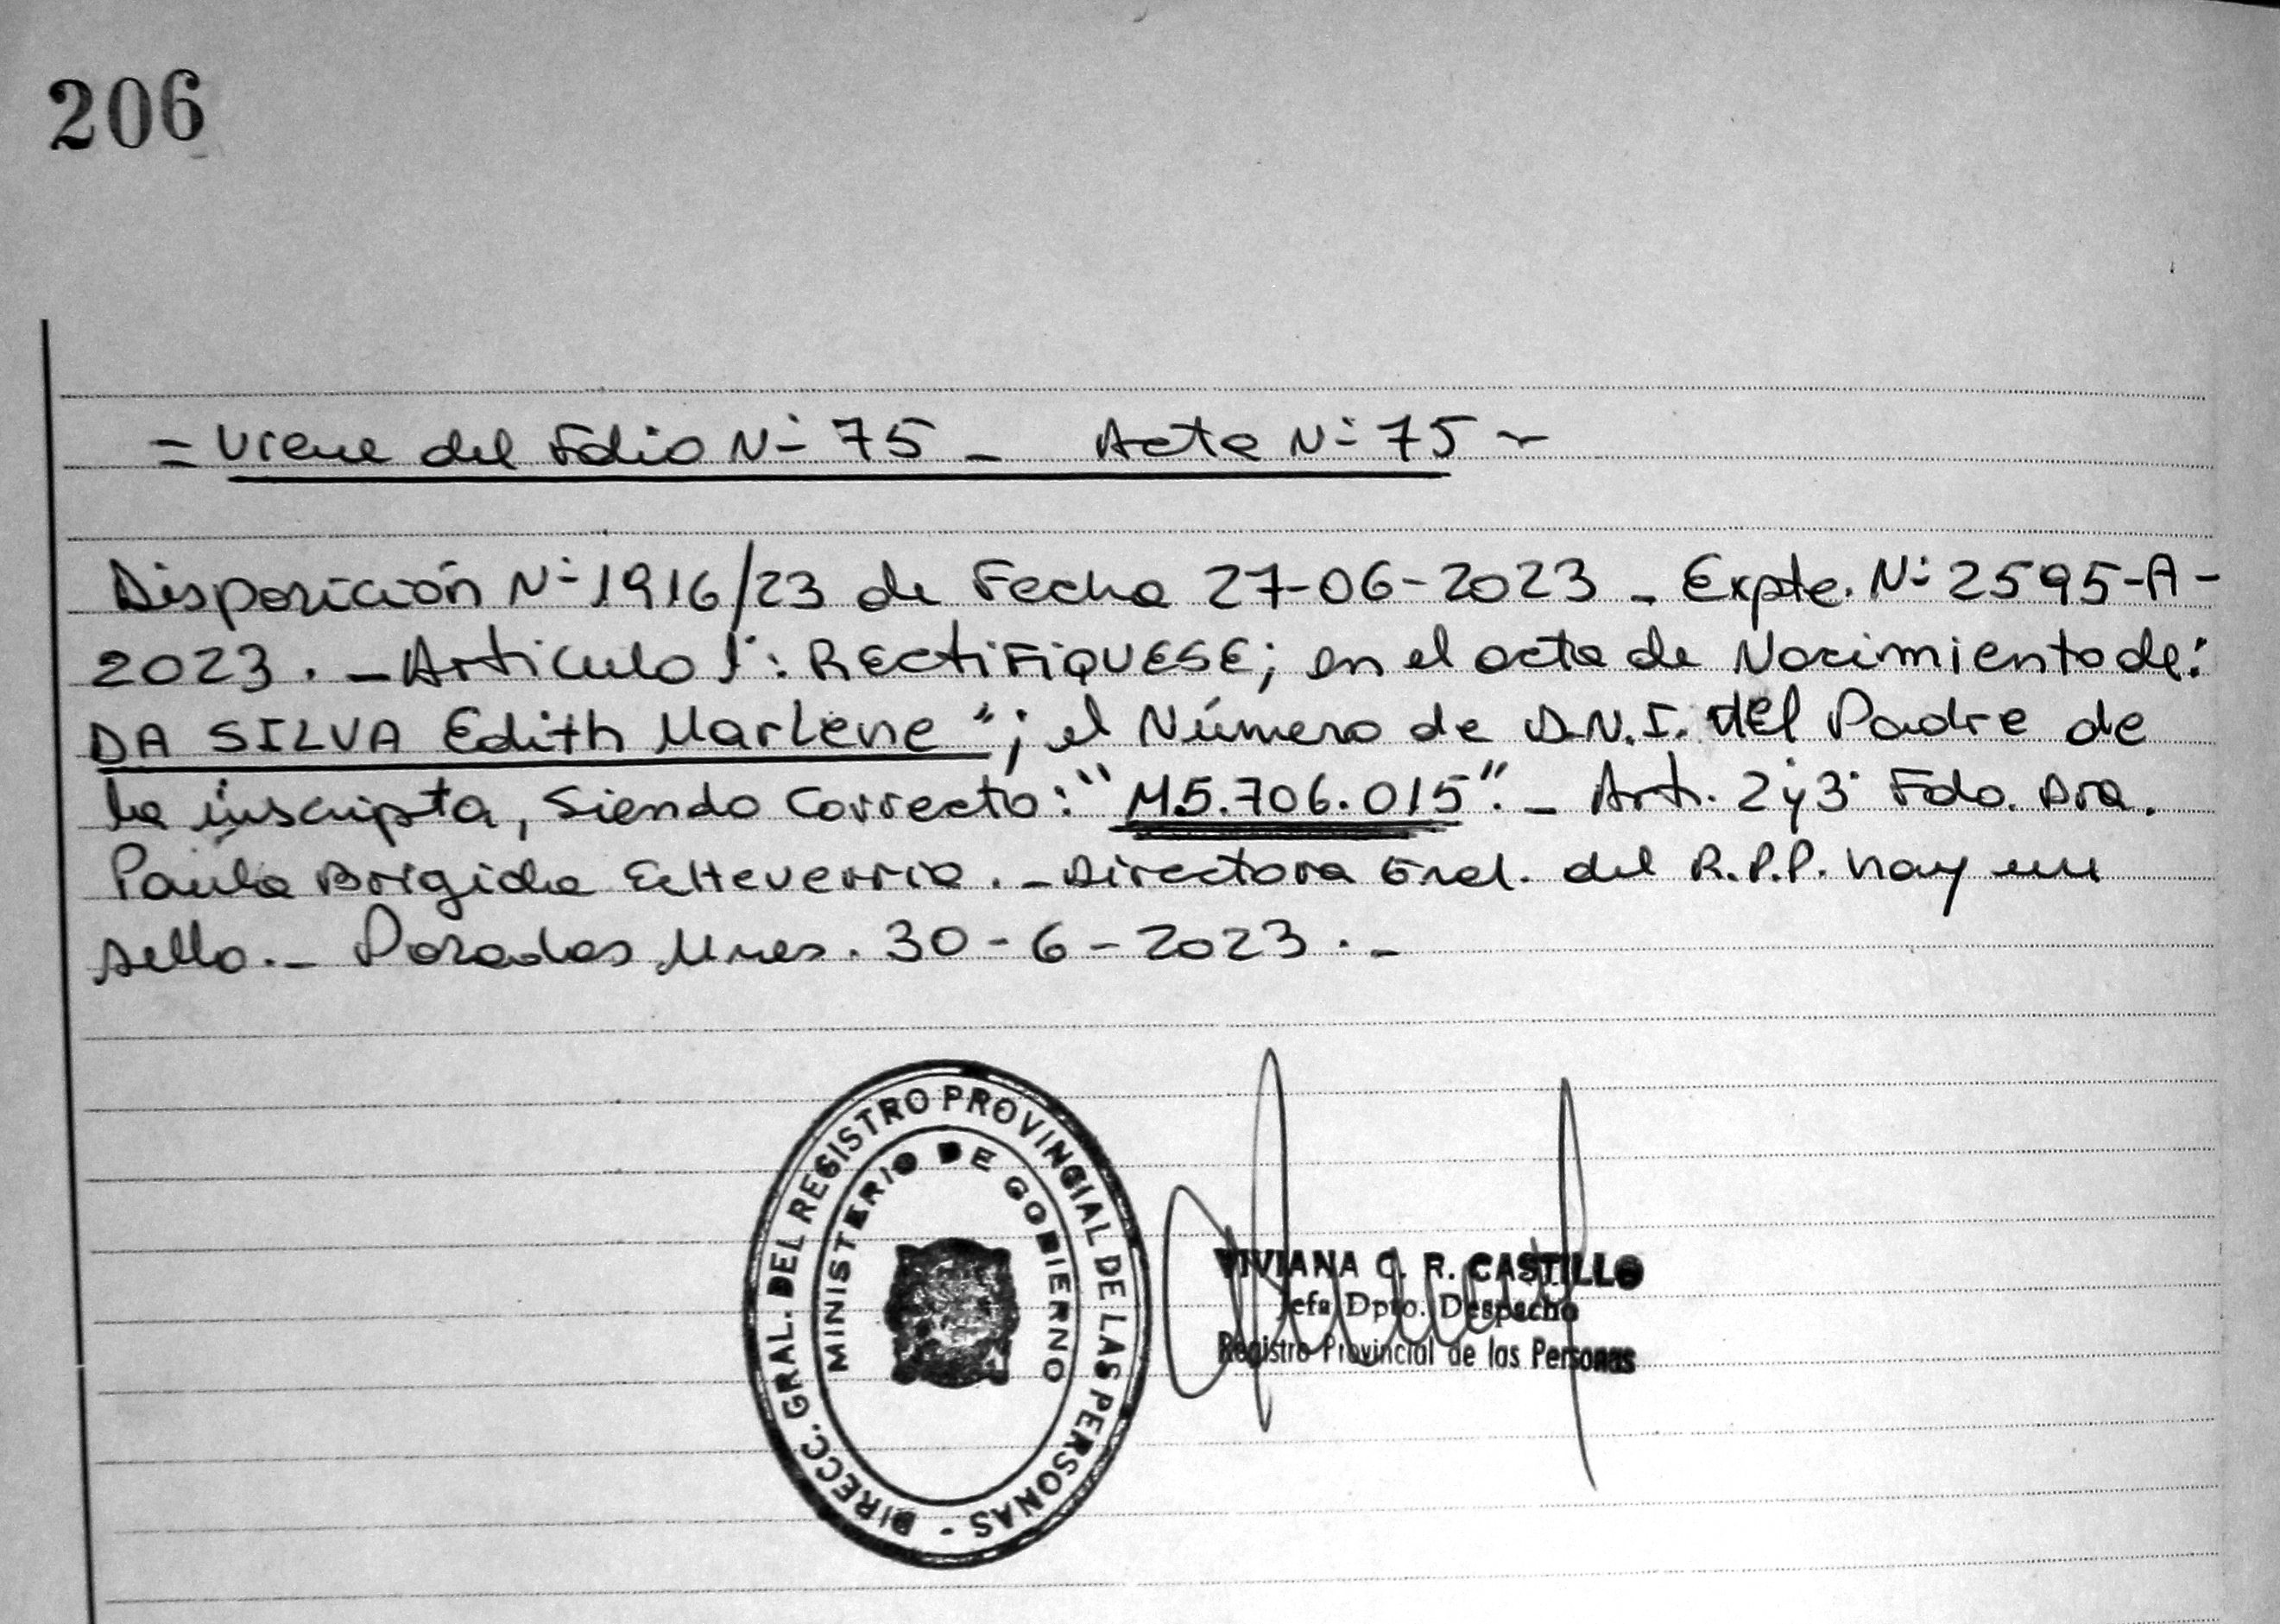 206
= Viene del Folio N° 75 - Acta N° 75 -
Disposición N° 1916/23 de Fecha 27-06-2023 - Expte. N° 2595-A-
2023. - Articulo 1°: RECTIFIQUESE; en el acta de Nacimiento de:
DA SILVA Edith Marlene"; el Número de D.N.I. del Padre de
la inscripta, Siendo Correcto: "M5.706.015". - Art. 2 y 3° Fdo. Dra.
Paula Brigida Echeverria. - Directora Gral. del R.P.P. hay un
sello. - Posadas Mnes. 30-6-2023. -
DIRECC. GRAL. DEL REGISTRO PROVINCIAL DE LAS PERSONAS -
MINISTERIO DE GOBIERNO
VIVIANA C. R. CASTILLO
Jefa Dpto. Despacho
Registro Provincial de las Personas